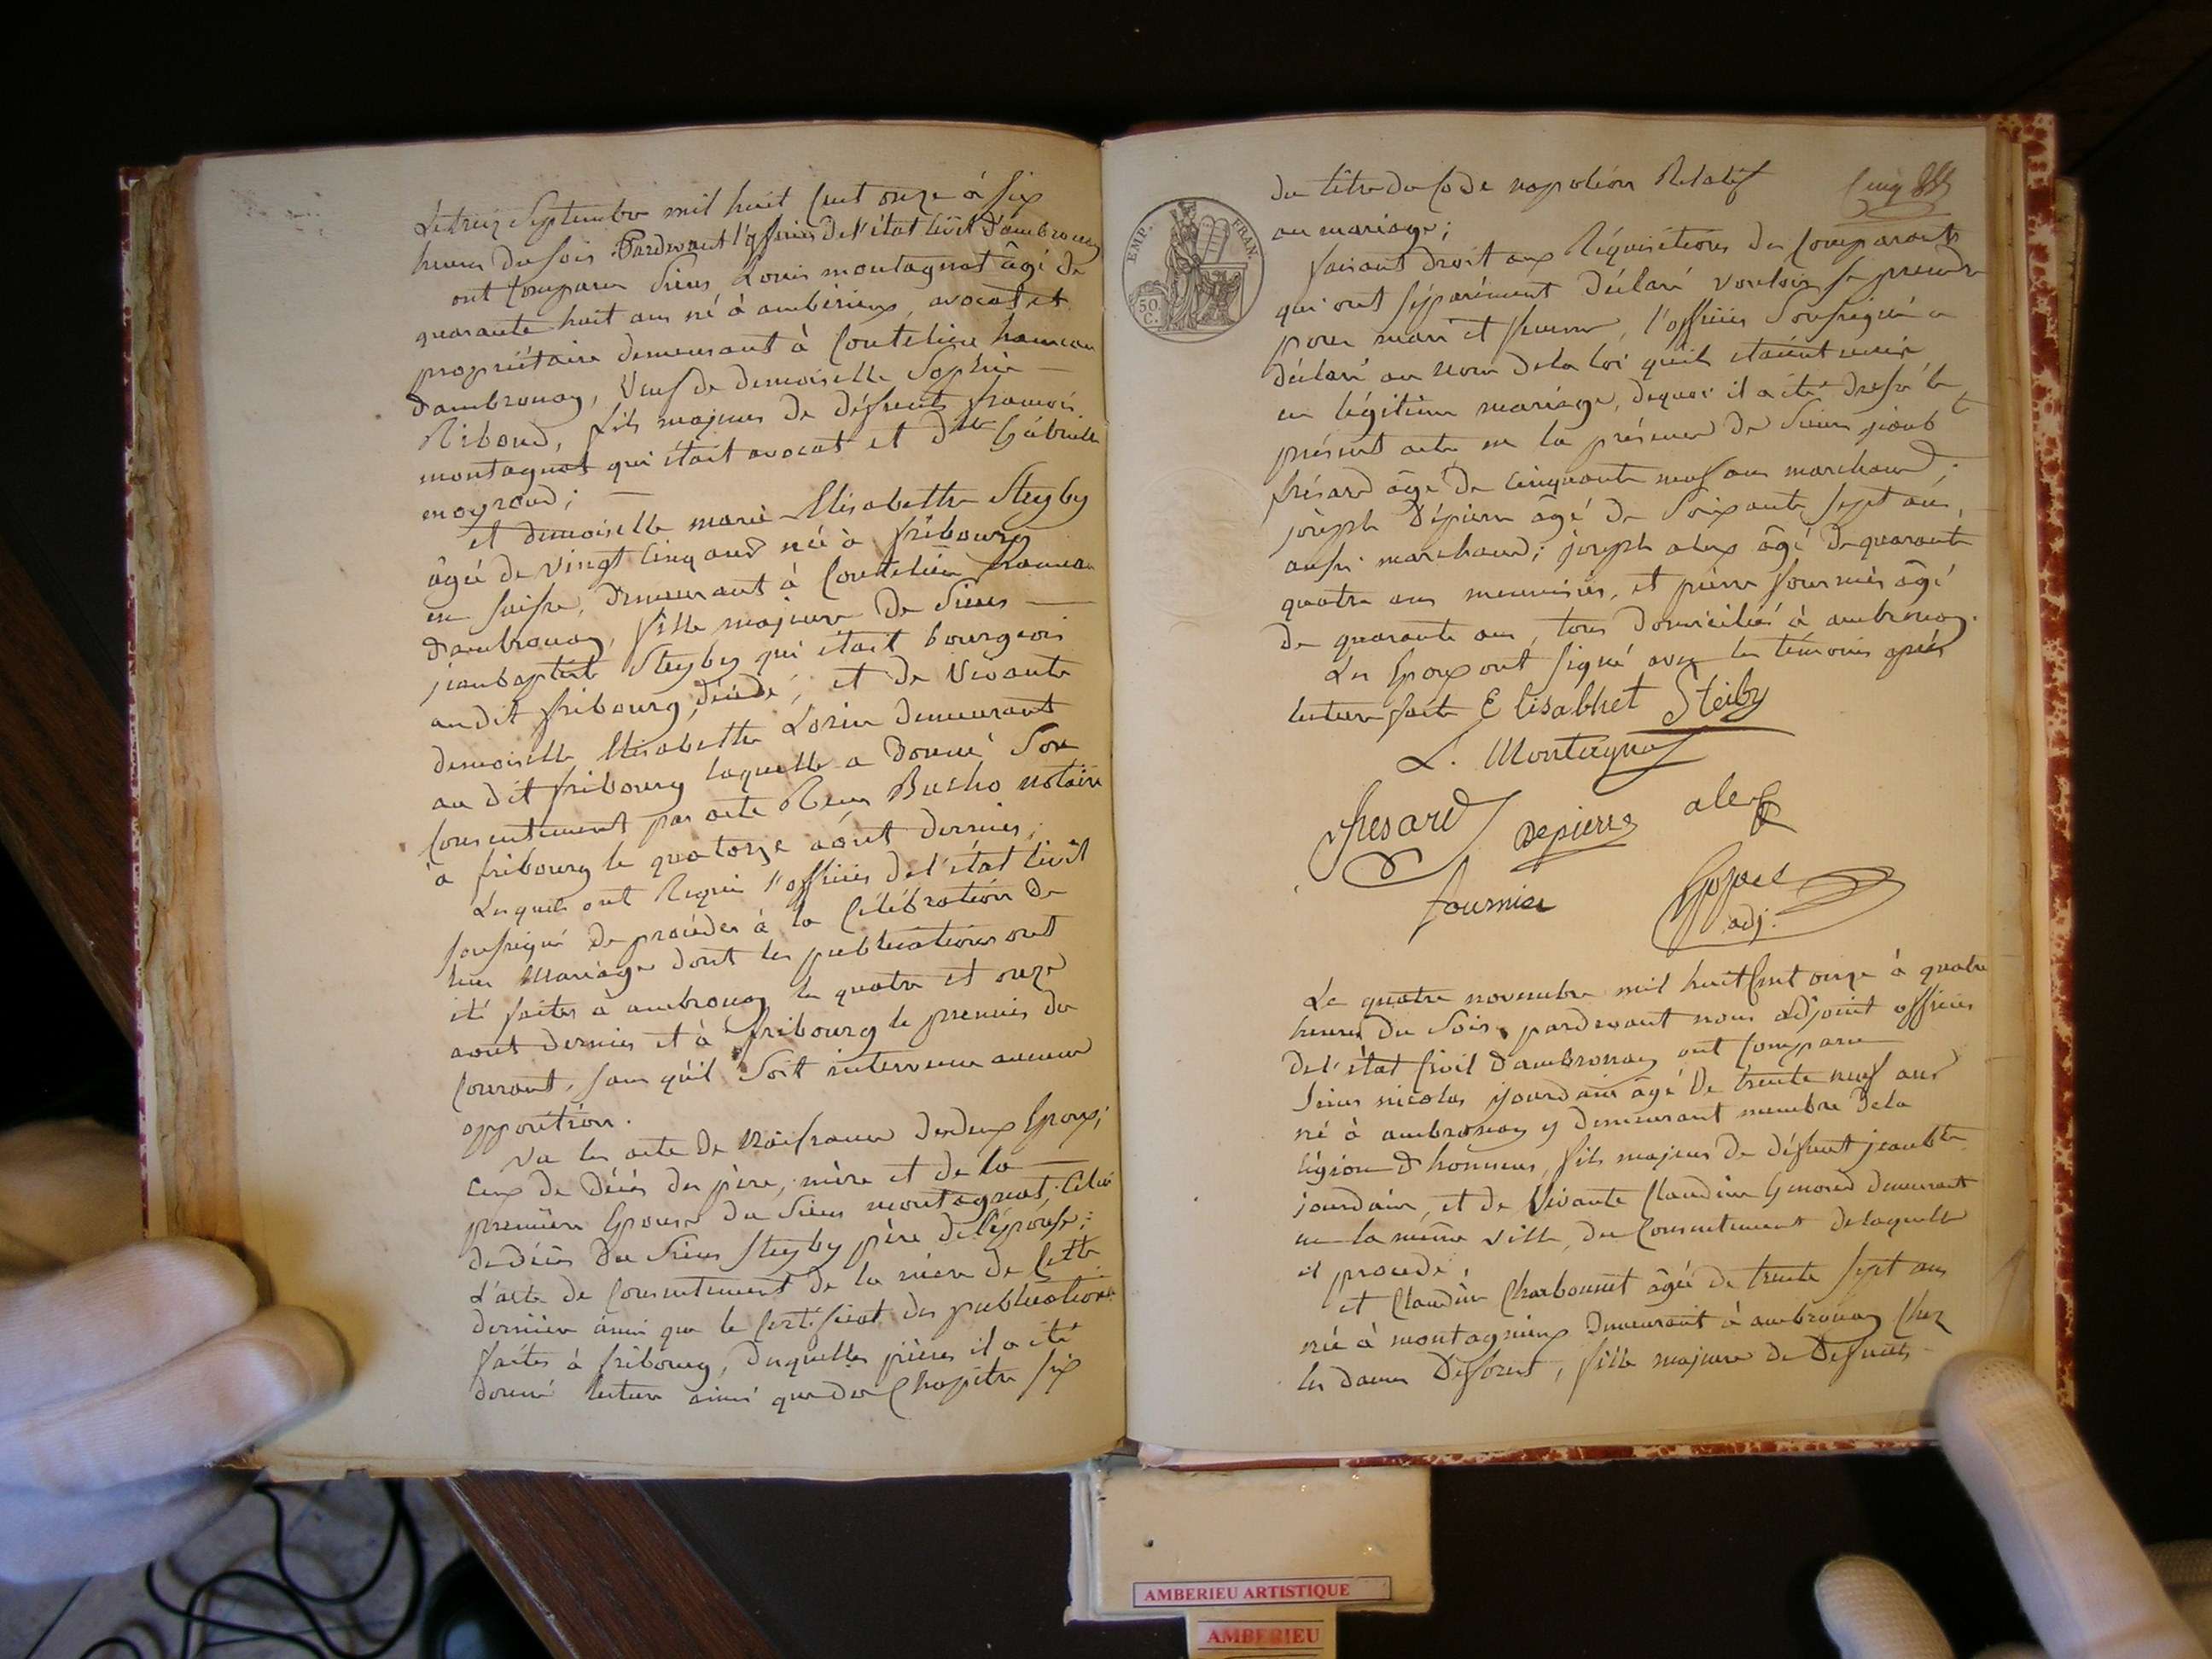 Le treize Septembre mil huit Cent onze à six
heures du soir Pardevant l'officier de l'état Civil d'ambronay
ont Comparu Sieur Louis montagnat âgé de
quarante huit ans né à ambérieux, avocat et
propriétaire demeurant à Coutelieu hameau
d'ambronay, Veuf de demoiselle Sophie
Riboud, fils majeur de défunts francois
montagnat qui était avocat et dlle Gabrielle
et demoiselle marie Elisabeth Steyby
âgée de vingt Cinq ans née à fribourg
en suisse, demeurant à Coutelieu hameau
d'ambronay, fille majeure de Sieur
jean baptiste Steyby qui était bourgeois
au dit fribourg, décédé, et de Vivante
demoiselle Elisabeth Lorin demeurant
au dit fribourg laquelle a donné Son
Consentement par acte Reçu Bucho notaire
à fribourg le quatorze aôut dernier;
Lesquels ont Requi l'officier de l'état Civil
soussigné de procéder à la Célébration de
leur Mariage dont les publications ont
été faites à ambronay les quatre et onze
aout dernier et à fribourg le premier du
Courant, sans qu'il Soit intervenu aucune
opposition.
Vu les acte de Naissance des deux Epoux;
Ceux de décès des père, mère et de la
première Epouse du Sieur montagnat; Celui
de décès du Sieur Steyby père de l'épouse;
L'acte de Consentement de la mère de Cette
dernière ainsi que le Certificat des publications
faites à fribourg, desquelles pièces il a été
donné lecture ainsi que du Chapitre six
du titre du Code napoléon Relatif
au mariage;
EMP. FRAN.
50 C.
faisant droit aux Réquisitions des Comparants
qui ont séparément déclaré vouloir se prendre
pour mari et femme, l'officier Soussigné a
déclaré au Nom de la loi qu'ils étaient unis
en légitime mariage, dequoi il a été dressé le
présent acte en la présence de Sieurs jacob
frésard âgé de Cinquante neuf ans marchand;
joseph Dépierre âgé de Soixante sept ans,
aussi marchand; joseph alex âgé de quarante
quatre ans menuisier, et pierre fournier âgé
de quarante ans, tous domiciliés à ambronay.
Les Epoux ont signé avec les témoins après
lecture faite Elisabhet Steiby
L. Montagnat
fresard Depierre alex
fournier
adj.
Le quatre novembre mil huit Cent onze à quatre
heures du Soir, pardevant nous adjoint officier
de l'état Civil d'ambronay ont Comparu
Sieur nicolas jourdain âgé de trente neuf ans
né à ambronay y demeurant membre de la
légion d'honneur, fils majeur de défunt jean bte
jourdain, et de Vivante Claudine Gmond demeurant
en la même ville, du Consentement de laquelle
il procede;
et Claudine Charbonnet âgée de trente sept ans
née à montagnieux demeurant à ambronay Chez
les dames Deforest, fille majeure de Defunts
AMBERIEU ARTISTIQUE
AMBERIEU